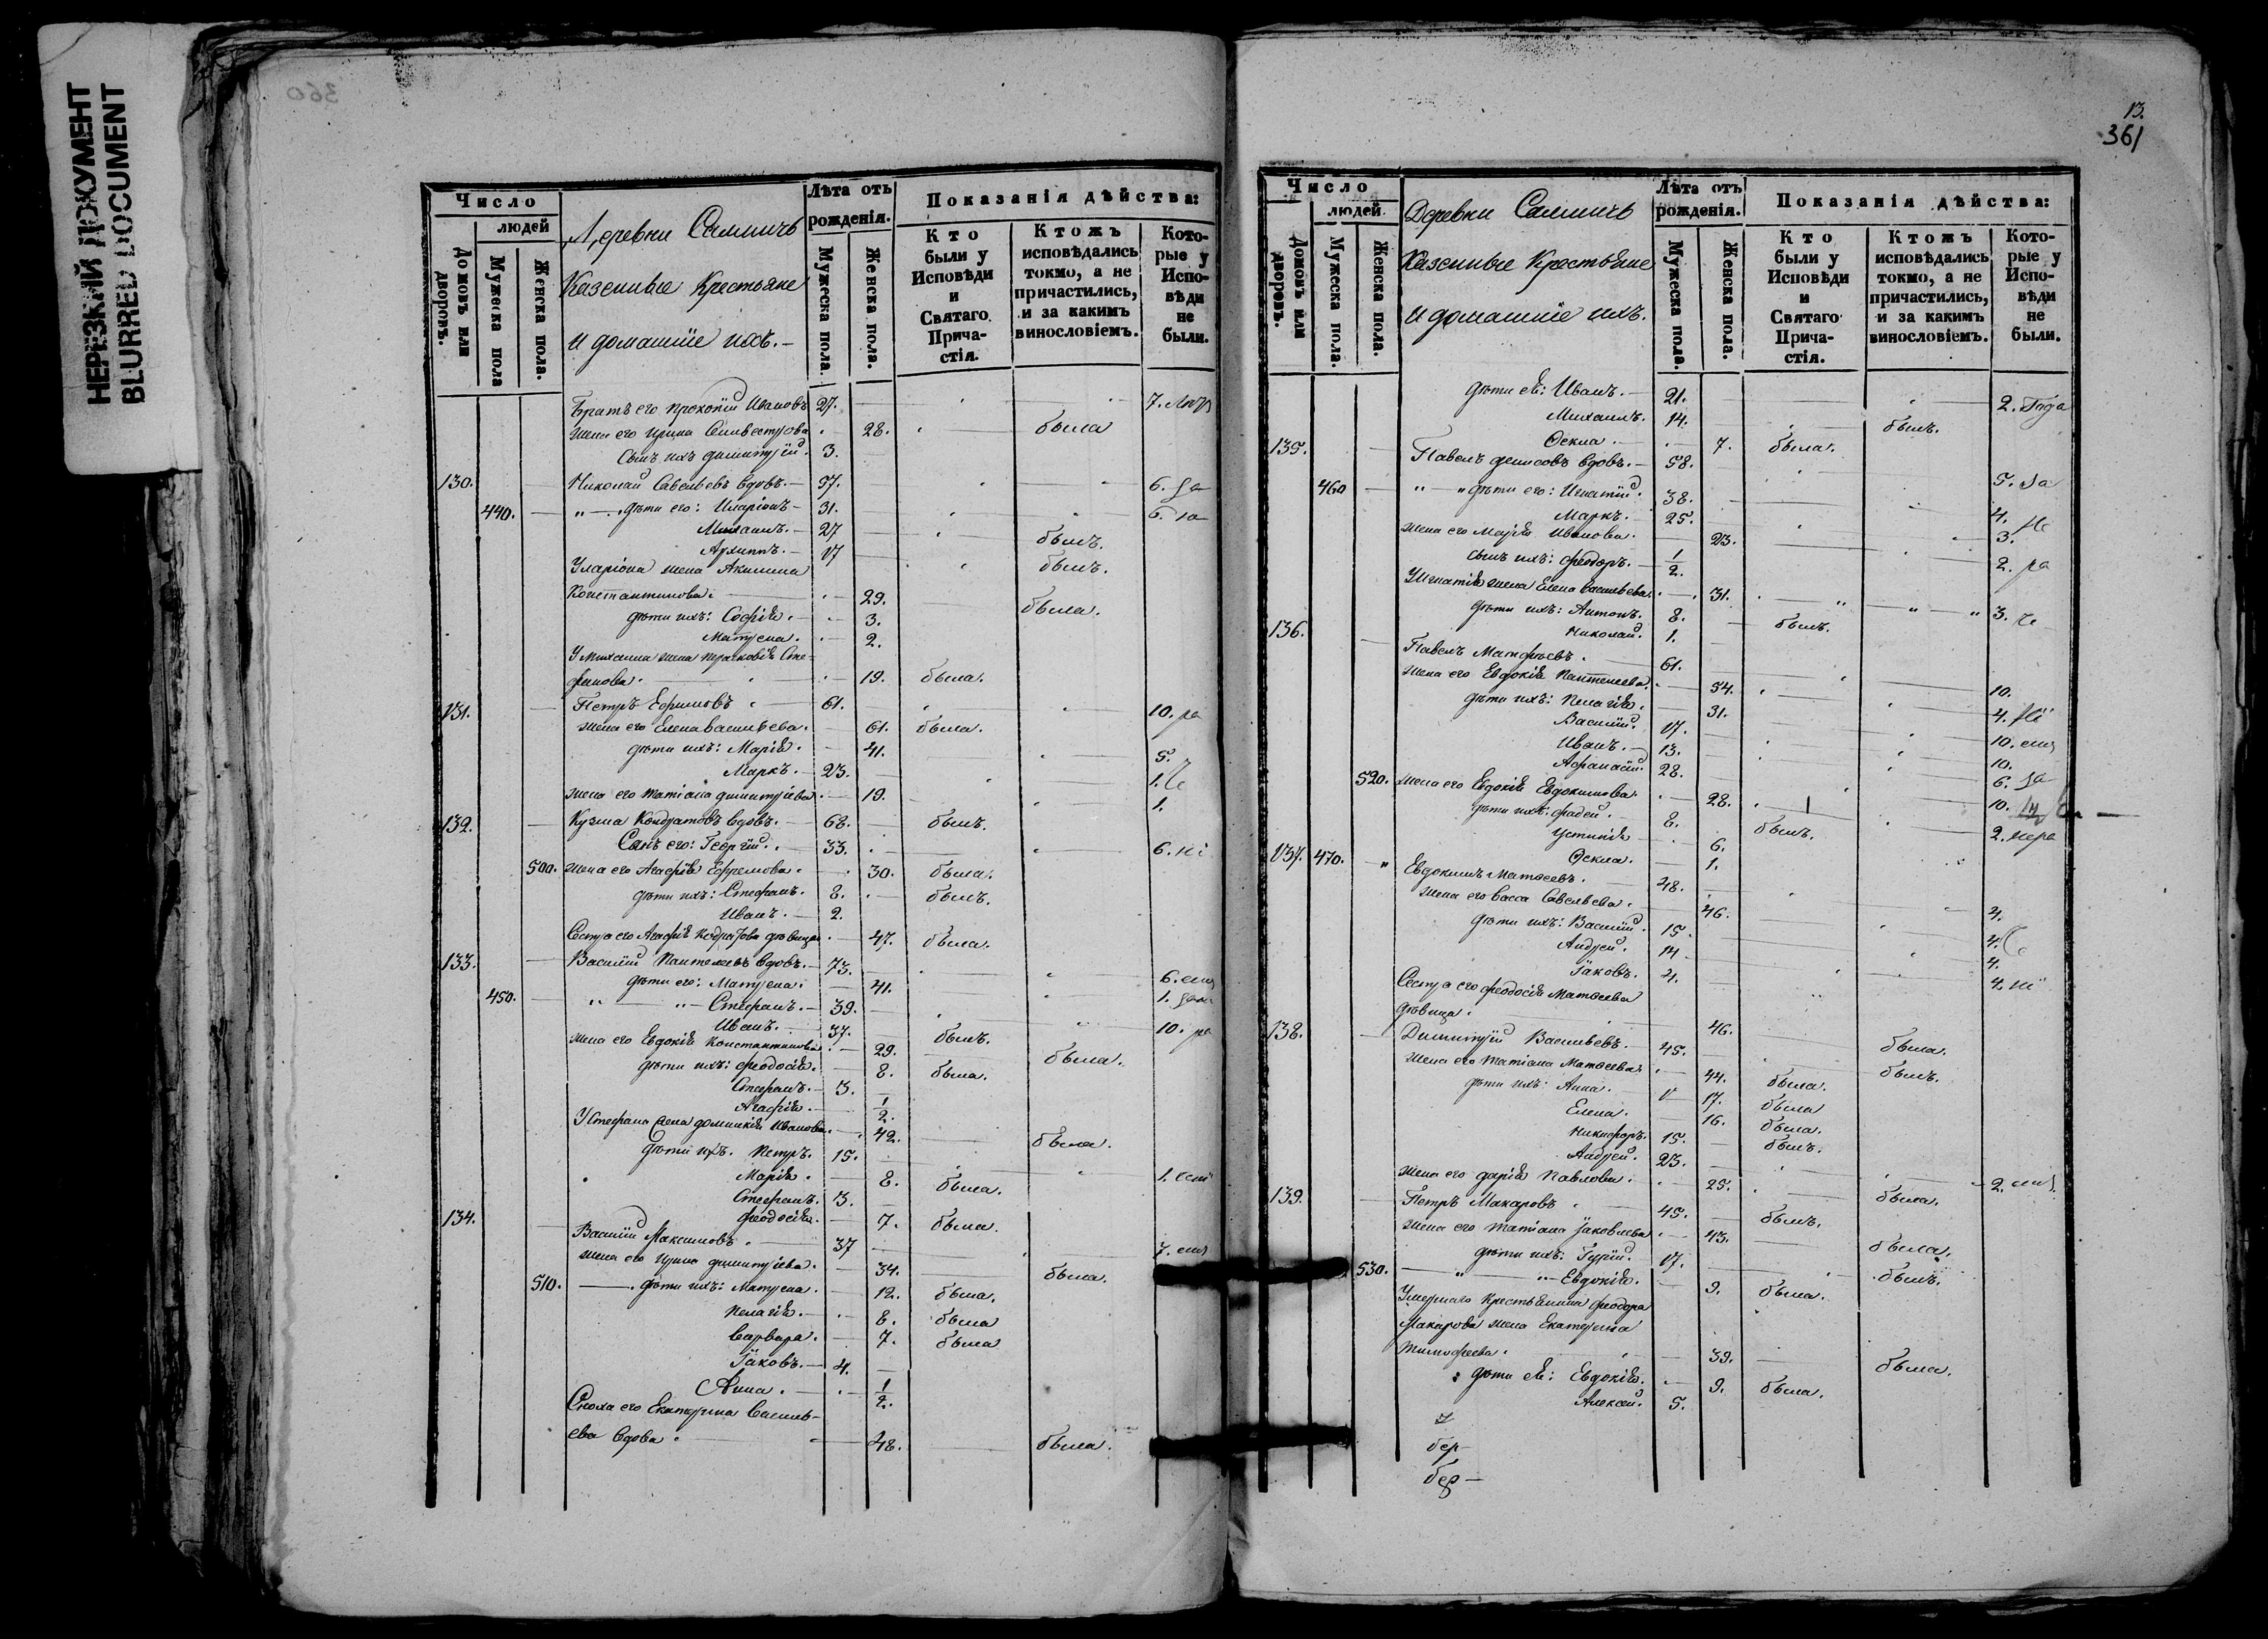 НЕРЕЗКИЙ ДОКУМЕНТ
BLURRED DOCUMENT
360
Число
людей
Домовъ или дворовъ.
Мужеска пола
Женска пола.
Деревни
Казенные Крестьяне
и домашніе ихъ.
Лѣта отъ рожденія.
Мужеска пола.
Женска пола.
Показанія дѣйства:
Кто были у Исповѣди и Святаго Причастія.
Ктожъ исповѣдались токмо, а не причастились, и за какимъ винословіемъ.
Которые у Исповѣди не были.
Братъ его Прокопій Ивановъ 27. 7.
жена его Ирина Селивестрова 28. была
Сынъ ихъ Димитрій 3.
130. Николай Савельевъ вдовъ. 57. 6.
440. дѣти его: Иларіонъ 31. 6.
Михаилъ. 27 былъ.
Архиппъ. 17 былъ.
Уларіона жена Акилина
Константинова. 29. была.
дѣти ихъ: Софія. 3.
Матрена. 2.
У Михаила жена Прасковія Сте-
фанова. 19. была.
131. Петръ Ефимовъ 61. 10.
жена его Елена Васильева. 61. была.
дѣти ихъ: Марія. 41. 5.
Маркъ. 23. 1.
жена его Татіана Димитріева 19. 1.
132. Кузма Кондратовъ вдовъ. 68. былъ.
Сынъ его: Георгій. 33. 6.
500. жена его Агафія Ефремова. 30. была.
дѣти ихъ: Стефанъ. 8. былъ.
Иванъ. 2.
Сестра его Агафія дѣвица 47. была.
133. Василій Пантелеевъ вдовъ. 73. 6.
дѣти его: Матрена. 41. 1.
450. Стефанъ. 39. 10.
Иванъ. 37. былъ.
жена его Евдокія Константинова 29. была.
дѣти ихъ: Феодосія. 8. была.
Стефанъ. 3.
Агафія. 1/2.
У Стефана жена Домникія Иванова. 42. была.
Дѣти ихъ. Петръ. 15. 1.
Марія. 8. была.
Стефанъ. 3.
Феодосія. 7. была.
134. Василій Максимовъ. 37 7.
жена его Ирина Димитріева. 34. была.
510. дѣти ихъ: Матрена. 12. была.
Пелагія. 8. была
Варвара. 7. была
Іаковъ. 4.
Анна. 1/2.
Сноха его Екатерина Василь-
ева вдова 48. была.
13.
361
Число
людей
Домовъ или дворовъ.
Мужеска пола.
Женска пола.
Деревни
Казенные Крестьяне
и домашніе ихъ.
Лѣта отъ рожденія.
Мужеска пола.
Женска пола.
Показанія дѣйства:
Кто были у Исповѣди и Святаго Причастія.
Ктожъ исповѣдались токмо, а не причастились, и за какимъ винословіемъ.
Которые у Исповѣди не были.
дѣти ея: Иванъ. 21. 2. года
Михаилъ. 14. былъ.
Фекла. 7. была.
135. Павелъ Денисовъ вдовъ. 58. 5.
460 дѣти его: Игнатій. 38. 4.
Маркъ. 25. 3.
жена его Марія Иванова. 23. 2.
сынъ ихъ: Феодоръ. 1/2.
У Игнатія жена Елена Васильева. 31. 3.
дѣти ихъ: Антонъ. 8. былъ.
Николай. 1.
136. Павелъ Матфѣевъ. 61. 10.
жена его Евдокія Пантелеева. 54. 4.
дѣти ихъ: Пелагія. 31. 10.
Василій. 17. 10.
Иванъ. 13. 6.
Афанасій. 28. 10.
520. жена его Евдокія Евдокимова. 28. 2.
дѣти ихъ: Фадей. 8. былъ.
Устинія 6.
Фекла. 1.
137. 470. Евдокимъ Матвеевъ. 48. 4.
жена его Васса Савельева. 46. 4.
дѣти ихъ: Василій. 15. 4.
Андрей. 14. 4.
Іаковъ. 4.
Сестра его Феодосія Матвеева
дѣвица. 46. была.
138. Димитрій Васильевъ. 45. былъ.
жена его Татіана Матвеева. 44. была.
дѣти ихъ: Анна. 17. была
Елена. 16. была.
Никифоръ. 15. былъ.
Андрей. 23. 2.
жена его Дарія Павлова. 25. была.
139. Петръ Макаровъ 45. былъ.
жена его Татіана Іаковлева 43. была.
дѣти ихъ: Гурій. 17. былъ.
530. Евдокія. 9. была.
Умершаго Крестьянина Феодора
Макарова жена Екатерина
Тимофеева. 39. была.
дѣти ея: Евдокія. 9. была.
Алексей. 5.